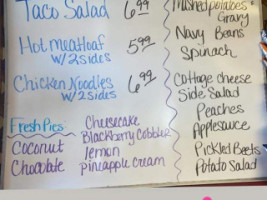 Taco Salad 6.99
Hot meatloaf 5.99
w/2sides
Chicken Noodles 6.99
w/2 sides
Fresh Pies Cheesecake
Blackberry Cobbler
Coconut lemon
Chocolate pineapple cream
Mashed potatoes &
Gravy
Navy Beans
Spinach
Cottage cheese
Side Salad
Peaches
Applesauce
Pickled Beets
Potato Salad